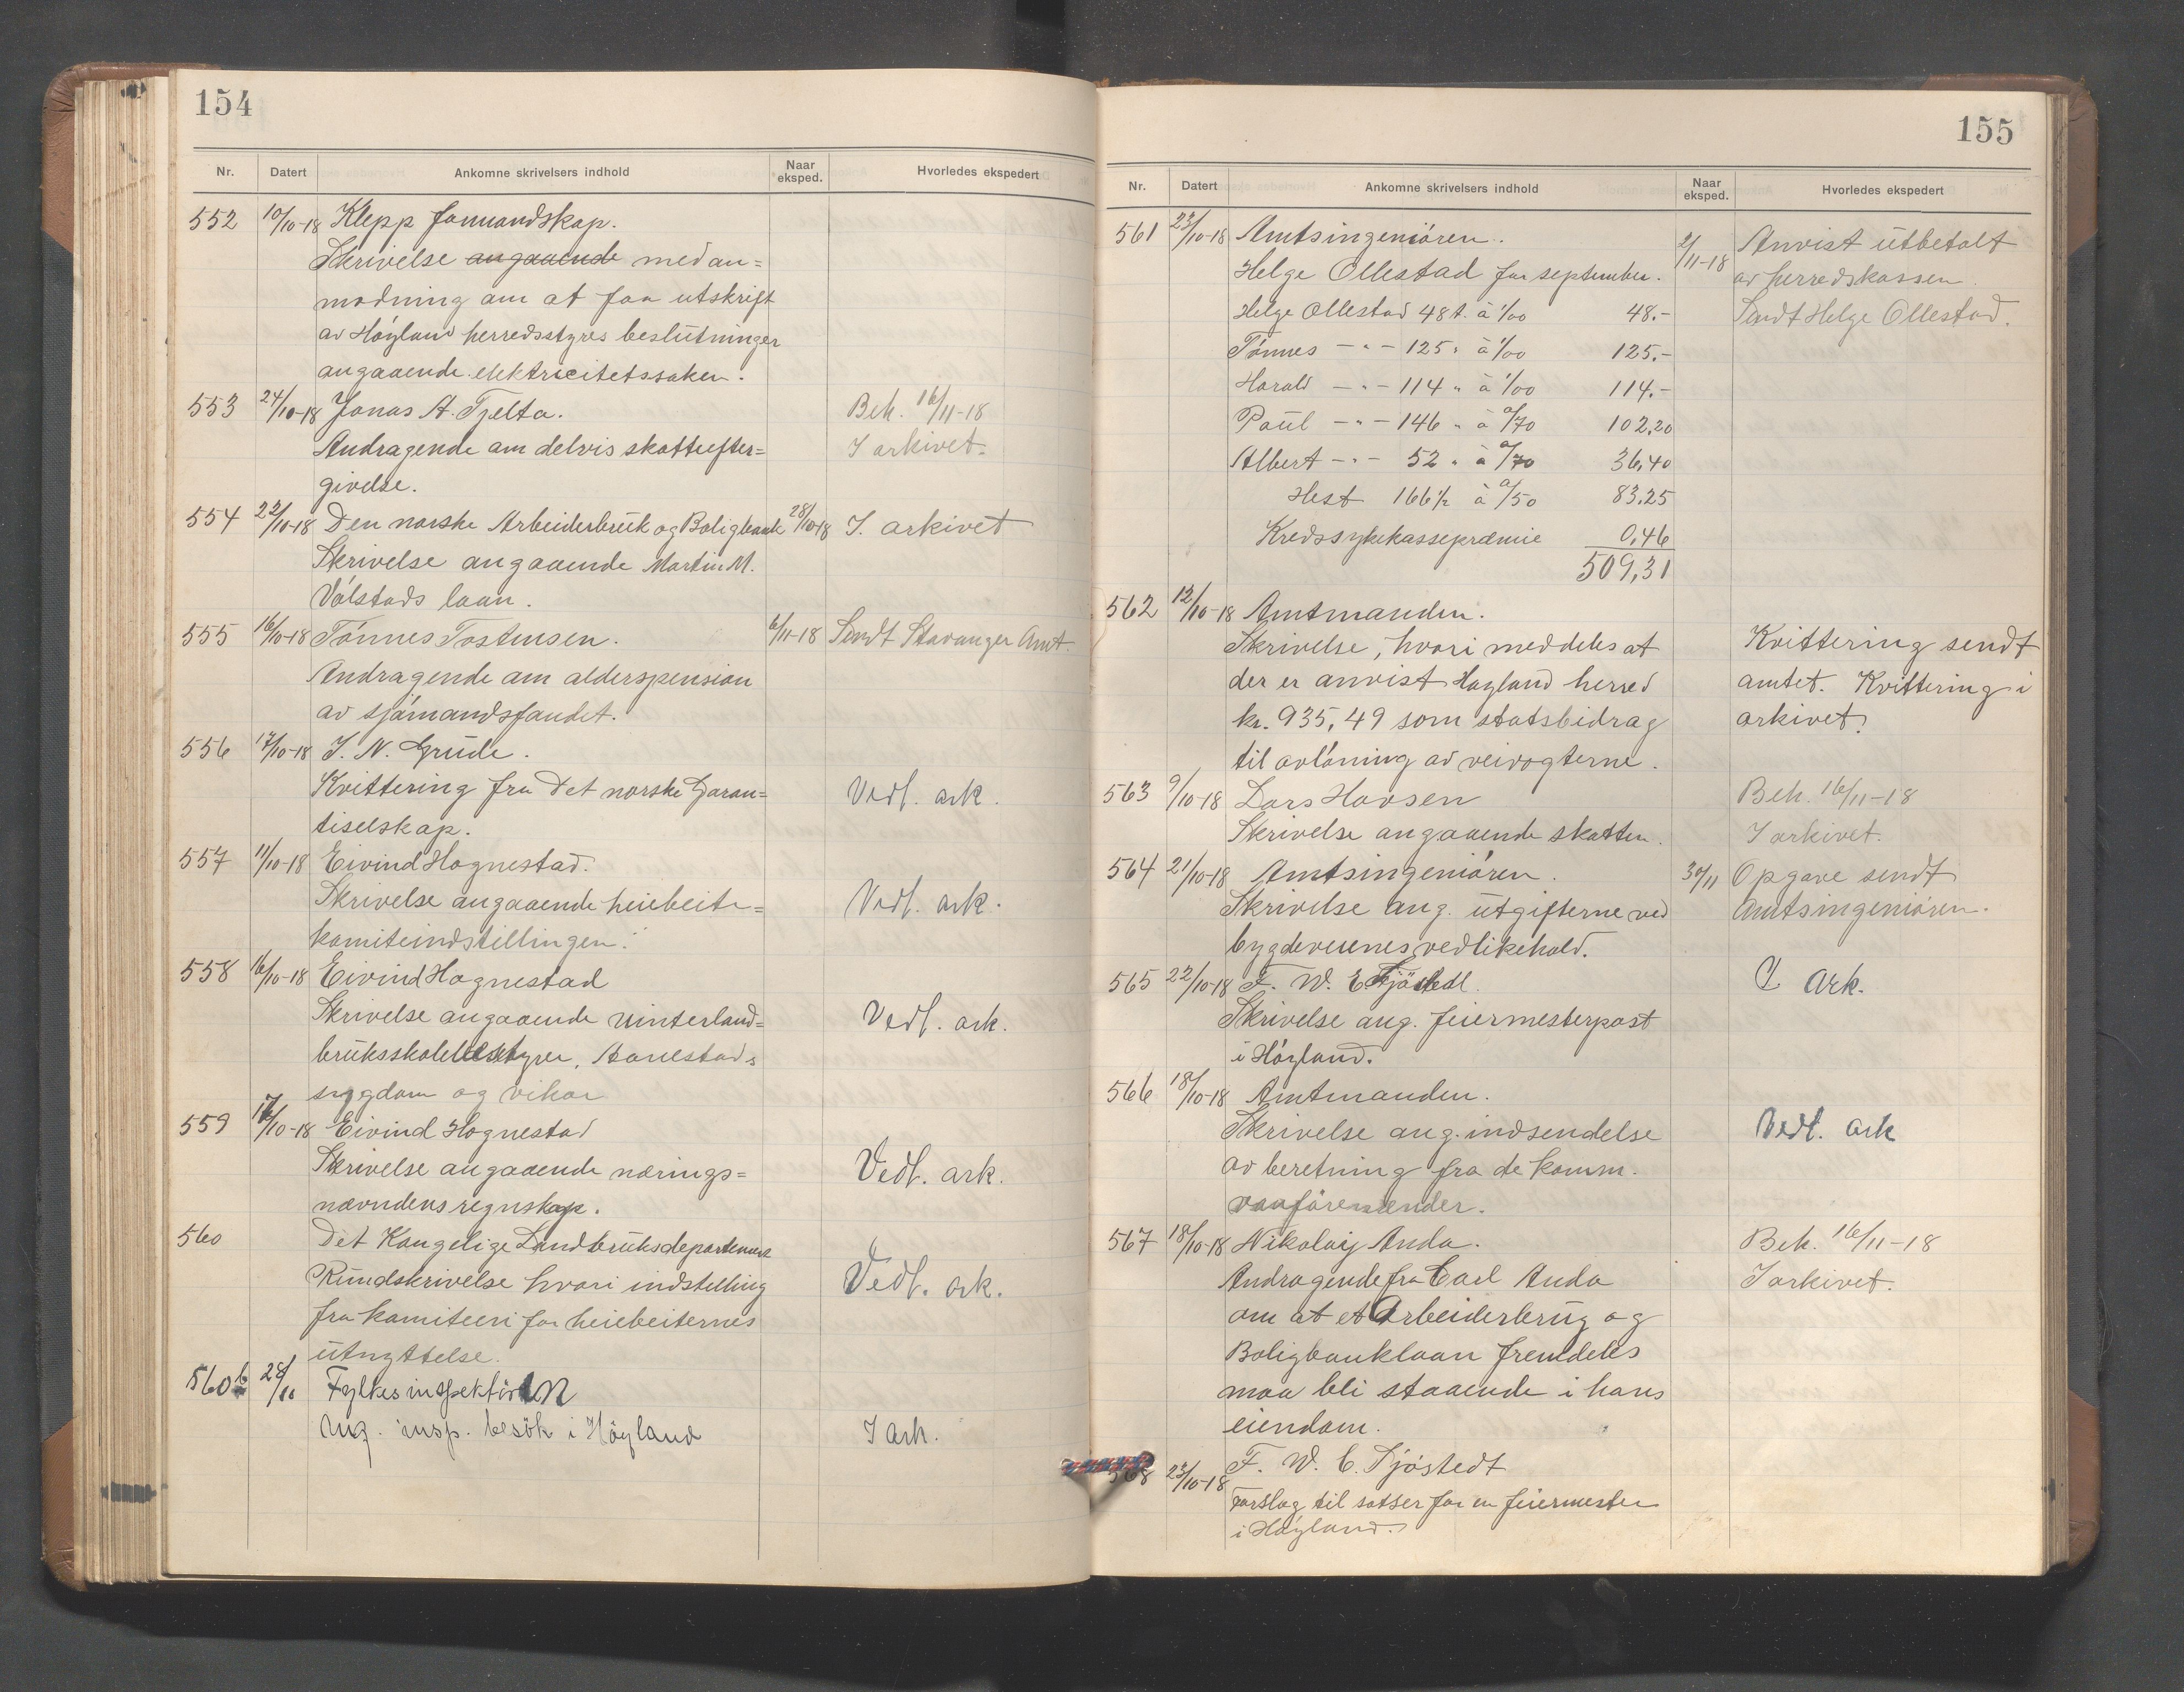 154
Nr. Datert Ankomne skrivelsers indhold Naar eksped. Hvorledes ekspedert
552 10/10-18 Klepp formandskap.
Skrivelse angaaende med an=
modning om at faa utskrift
av Høyland herredsstyres beslutninger
angaaende elektricitetssaken.
553 24/10-18 Jonas A. Tjelta. Beh. 16/11-18
Andragende om delvis skatteefter= I arkivet.
givelse.
554 22/10-18 Den norske Arbeiderbruk og Boligbank 28/10-18 I. arkivet
Skrivelse angaaende Martin M.
Vølstads laan.
555 16/10-18 Tønnes Tostensen. 6/11-18 Sendt Stavanger Amt.
Andragende om alderspension
av sjømandsfondet.
556 17/10-18 J. N. Grude.
Kvittering fra Det norske Garan= Vedl. ark.
tiselskap.
557 11/10-18 Eivind Hognestad.
Skrivelse angaaende heiebeite= Vedl. ark.
komiteindstillingen.
558 16/10-18 Eivind Hognestad
Skrivelse angaaende vinterland= Vedl. ark.
bruksskolebestyrer,
sygdom og vikar
559 17/10-18 Eivind Hognestad
Skrivelse angaaende nærings= Vedl. ark.
nævndens regnskap.
560 Det Kongelige Landbruksdepartement
Rundskrivelse hvori indstilling Vedl. ark.
fra komiteen for heiebeiternes
utnyttelse.
560b 28/11 Fylkesinspektøren
Ang. insp. besök i Höyland I ark.
155
Nr. Datert Ankomne skrivelsers indhold Naar eksped. Hvorledes ekspedert
561 23/10-18 Amtsingeniøren. 2/11-18 Anvist utbetalt
Helge Ollestad for september. av herredskassen.
Helge Ollestad 48 t. à 1/00 48.- Sendt Helge Ollestad.
Tønnes -"- 125 " à 1/00 125.-
Harald -"- 114 " à 1/00 114.-
Paul -"- 146 " à 0/70 102,20
Albert -"- 52 " à 0/70 36,40
Hest 166 1/2 à 0/50 83,25
Kredssykekassepræmie 0,46
509,31
562 12/10-18 Amtmanden.
Skrivelse, hvori meddeles at Kvittering sendt
der er anvist Høyland herred amtet. Kvittering i
kr. 935,49 som statsbidrag arkivet.
til avløning av veivogterne.
563 9/10-18 Lars Hansen Beh. 16/11-18
Skrivelse angaaende skatten. I arkivet.
564 21/10-18 Amtsingeniøren. 30/11 Opgave sendt
Skrivelse ang. utgifterne ved Amtsingeniøren.
bygdeveienes vedlikehold.
565 22/10-18 F. W. E. Tjöstedt. I Ark.
Skrivelse ang. feiermesterpost
i Høyland.
566 18/10-18 Amtmanden.
Skrivelse ang. indsendelse Vedl. ark
av beretning fra de komm.
vanførenævnder.
567 18/10-18 Nikolaij Anda. Beh. 16/11-18
Andragende fra Carl Anda I arkivet.
om at et Arbeiderbrug og
Boligbanklaan fremdeles
maa bli staaende i hans
eiendom.
568 23/10-18 F. W. E. Tjöstedt
Forslag til satser for en feiermester
i Høyland.